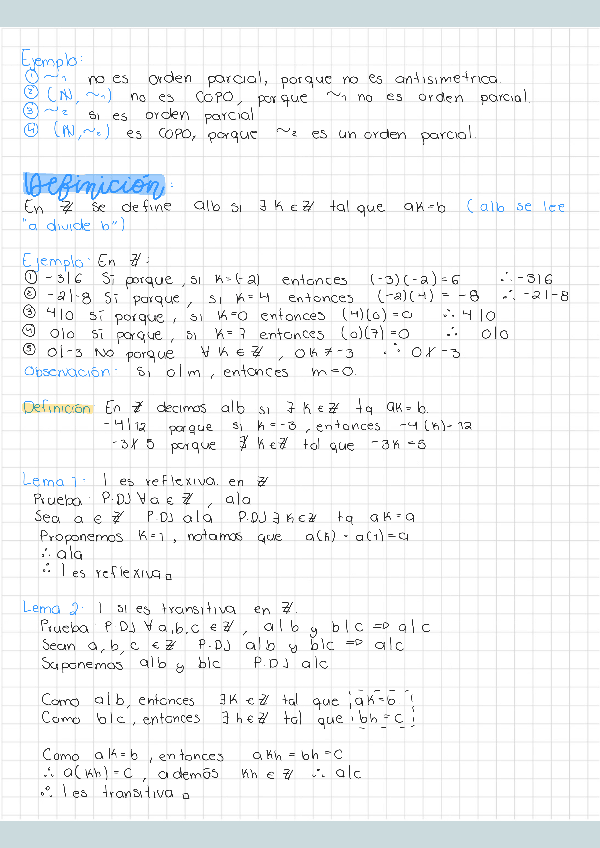 Ejemplo:
① ~₁ no es orden parcial, porque no es antisimetrica.
② (ℕ, ~₁) no es COPO, porque ~₁ no es orden parcial.
③ ~₂ si es orden parcial
④ (ℕ, ~₂) es COPO, porque ~₂ es un orden parcial.
Definición:
En ℤ se define a|b si ∃ K ∈ ℤ tal que aK=b (a|b se lee
"a divide b")
Ejemplo: En ℤ:
① -3|6 Sí porque, si K=(-2) entonces (-3)(-2)=6 ∴ -3|6
② -2|-8 Sí porque, si K=4 entonces (-2)(4) = -8 ∴ -2|-8
③ 4|0 sí porque, si K=0 entonces (4)(0)=0 ∴ 4|0
④ 0|0 sí porque, si K=7 entonces (0)(7)=0 ∴ 0|0
⑤ 0|-3 No porque ∀ K ∈ ℤ, 0K ≠ -3 ∴ 0∤-3
Observación: Si 0|m, entonces m=0.
Definición En ℤ decimos a|b si ∃ K ∈ ℤ tq aK=b.
-4|12 porque si K=-3, entonces -4(K)=12
-3∤5 porque ∄ K∈ℤ tal que -3K=5
Lema 1: | es reflexiva en ℤ
Prueba: P.DJ ∀a ∈ ℤ, a|a
Sea a ∈ ℤ P.DJ a|a P.DJ ∃ K∈ℤ tq aK=a
Proponemos K=1, notamos que a(K) = a(1)=a
∴ a|a
∴ | es reflexiva □
Lema 2: | si es transitiva en ℤ.
Prueba P.DJ ∀a,b,c ∈ ℤ, a|b y b|c ⇒ a|c
Sean a,b,c ∈ ℤ P.DJ a|b y b|c ⇒ a|c
Suponemos a|b y b|c P.DJ a|c
Como a|b, entonces ∃K ∈ ℤ tal que aK=b
Como b|c, entonces ∃h∈ℤ tal que bh=c
Como aK=b, entonces aKh = bh = c
∴ a(Kh)=c, además Kh ∈ ℤ ∴ a|c
∴ | es transitiva □